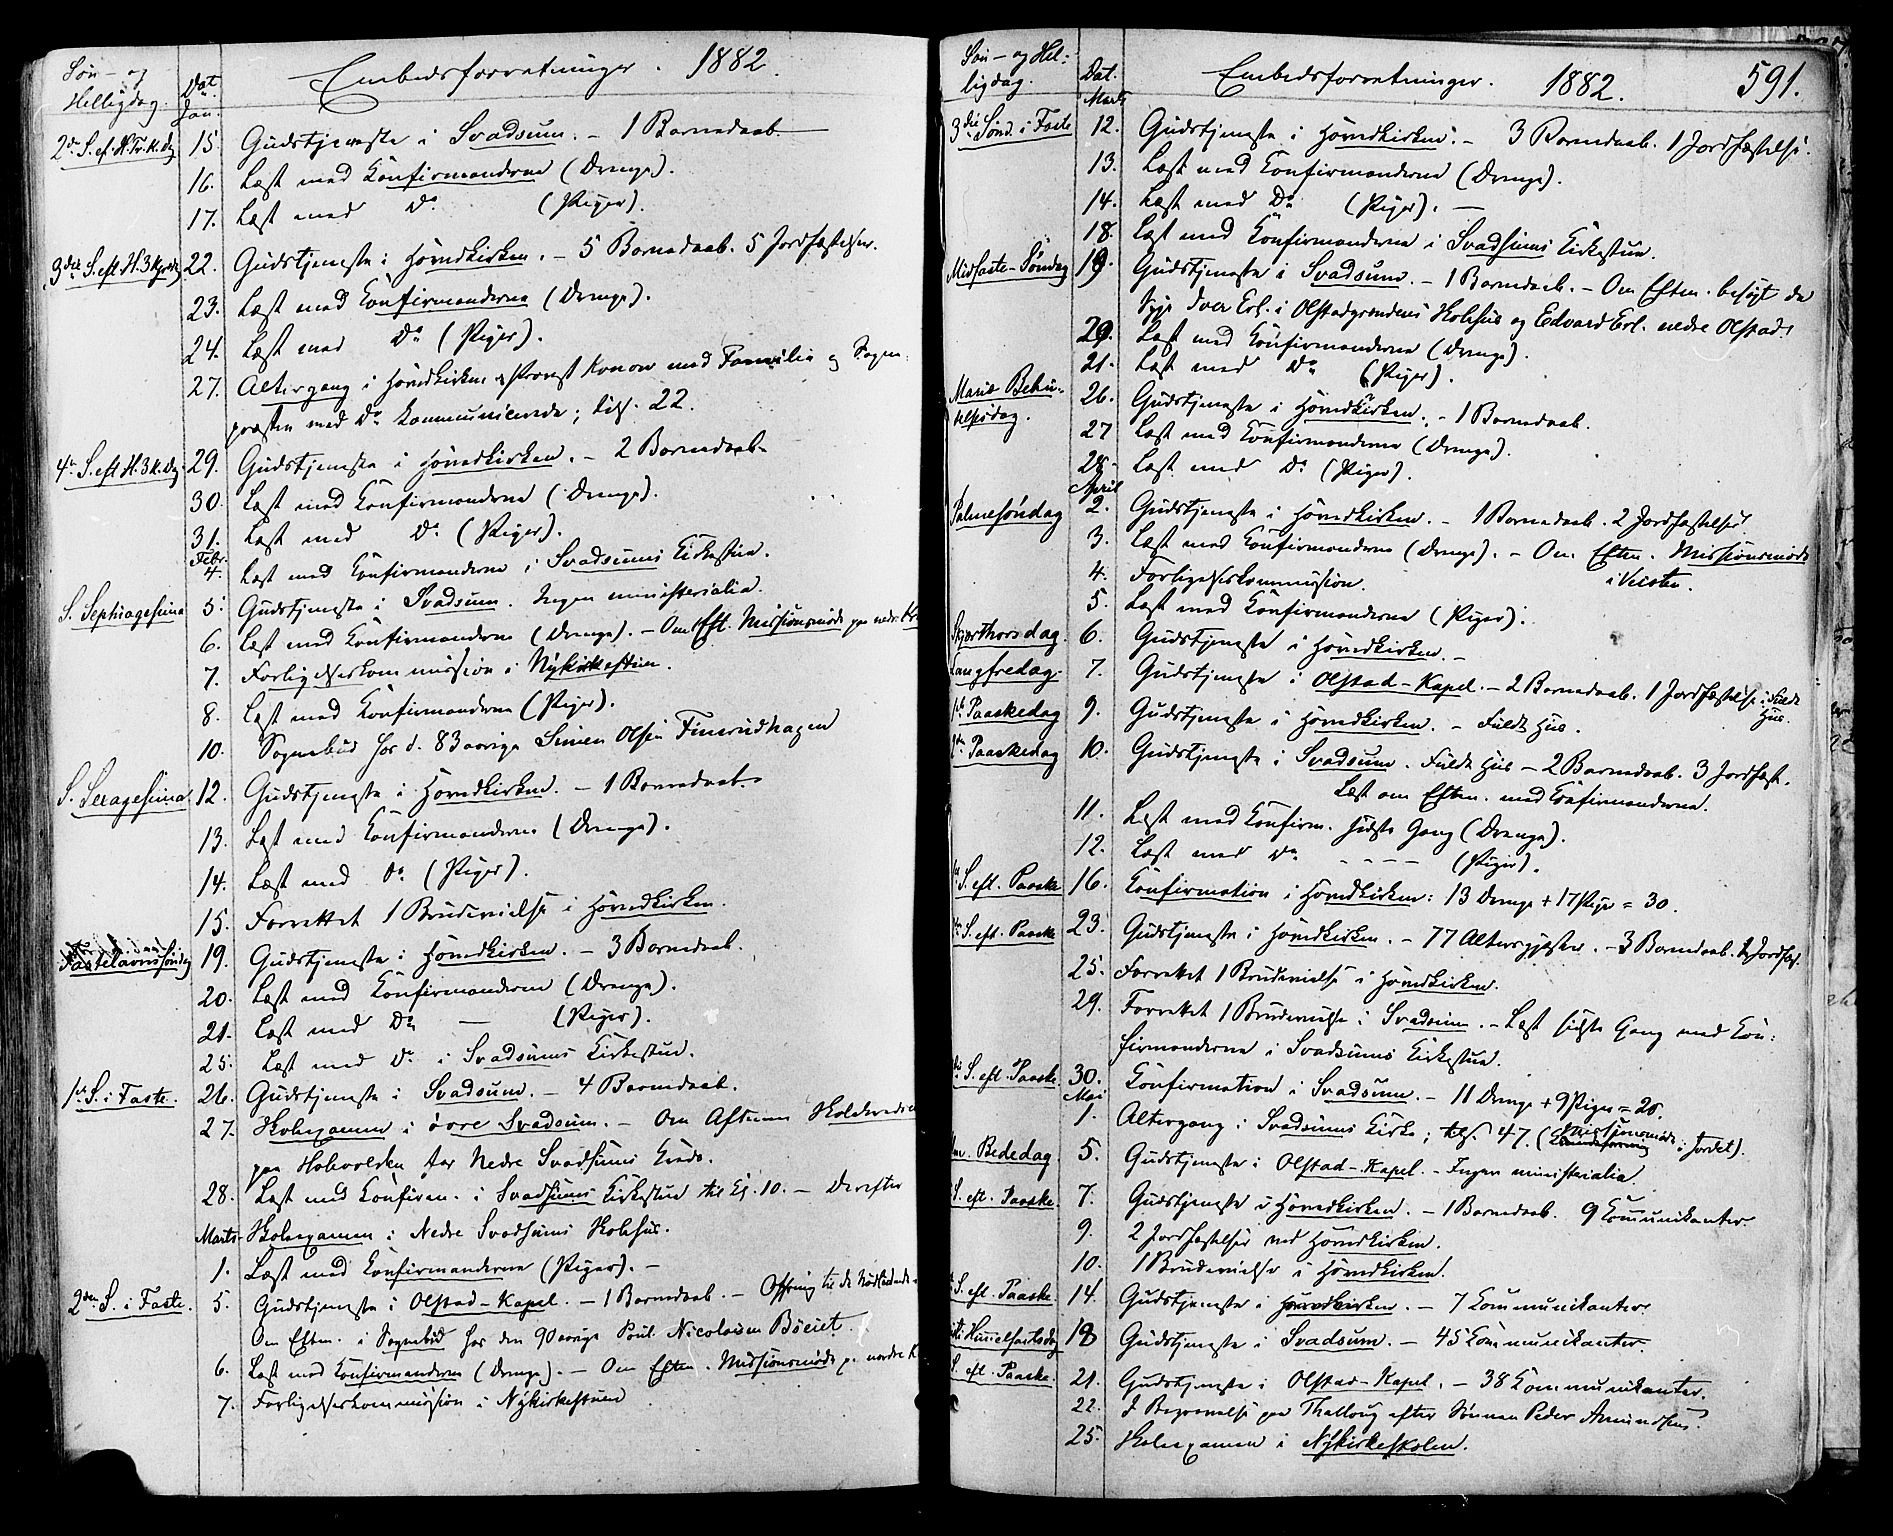 Søn- og Helligdag. Dat. Embedsforretninger. 1882.
Jan.
2den S. ef. H. Tr. K. Dg 15. Gudstjeneste i Svadsum. - 1 Barnedaab
16. Læst med Konfirmanderne (Drenge).
17. Læst med Do (Piger).
3die S. eft. H. 3 Kgrsdg 22. Gudstjeneste i Hovedkirken. - 5 Barnedaab. 5 Jordfæstelser.
23. Læst med Konfirmanderne (Drenge).
24. Læst med Do (Piger).
27. Altergang i Hovedkirken, Provst Konow med Familie og Sogne-
præsten med Do kommunicerede; tils. 22.
4de S. eft H. 3 K. Dg. 29. Gudstjeneste i Hovedkirken. - 2 Barnedaab
30. Læst med Konfirmanderne (Drenge).
31. Læst med Do (Piger).
Febr.
4. Læst med Konfirmanderne i Svadsums Kirkestue.
S. Septuagesima 5. Gudstjeneste i Svadsum. Ingen ministerialia.
6. Læst med Konfirmanderne (Drenge). - Om Eft. Missionsmøde paa nedre
7. Forligelseskommission i Nykirkestuen.
8. Læst med Konfirmanderne (Piger).
10. Sognebud hos d. 83 aarige Simen Olsen Finsrudhagen
S. Sexagesima 12. Gudstjeneste i Hovedkirken. - 1 Barnedaab
13. Læst med Konfirmanderne (Drenge).
14. Læst med Do (Piger).
15. Forrettet 1 Brudevielse i Hovedkirken.
Fastelavnssøndag 19. Gudstjeneste i Hovedkirken. - 3 Barnedaab.
20. Læst med Konfirmanderne (Drenge).
21. Læst med Do - (Piger).
25. Læst med Do i Svadsums Kirkestue.
1ste S. i Faste. 26. Gudstjeneste i Svadsum. - 4 Barnedaab.
27. Skoleexamen i øvre Svadsum. - Om Aftenen
paa for Nedre Svadsums Kreds.
28. Læst med Konfirm. i Svadsums Kirkestue til Kl. 10. - Derefter
Marts Skoleexamen i Nedre Svadsums Skolehus.
1. Læst med Konfirmanderne (Piger). -
2den S. i Faste. 5. Gudstjeneste i Olstad-Kapel. - 1 Barnedaab. - Offring til de Nødlidende
Om Eften. i Sognebud hos den 90 aarige Poul Nicolaisen
6. Læst med Konfirmanderne (Drenge). - Om Eften. Missionsmøde paa nordre
7. Forligelseskommission i Nykirkestuen
Søn- og Hel-
ligdag. Dat. Embedsforretninger. 1882. 591.
Marts
3die Sønd. i Faste 12. Gudstjeneste i Hovedkirken. - 3 Barnedaab. 1 Jordfæstelse.
13. Læst med Konfirmanderne (Drenge).
14. Læst med Do (Piger). -
18. Læst med Konfirmanderne i Svadsums Kirkestue.
Midfaste-Søndag 19. Gudstjeneste i Svadsum. - 1 Barnedaab. - Om Eften. besøgt de
syge Iver Erl. i Olstadgrendens Skolehus og Edvard Erl. nedre Olstad.
20. Læst med Konfirmanderne (Drenge).
21. Læst med Do (Piger).
Mariæ Bebu-
delsesdag. 26. Gudstjeneste i Hovedkirken. - 1 Barnedaab.
27 Læst med Konfirmanderne (Drenge).
28. Læst med Do (Piger).
April
Palmesøndag 2. Gudstjeneste i Hovedkirken. - 1 Barnedaab. 2 Jordfæstelser
3. Læst med Konfirmanderne (Drenge). - Om Eften. Missionsmøde
i Veisten.
4. Forligelseskommission.
5. Læst med Konfirmanderne (Piger).
Skjærthorsdag. 6. Gudstjeneste i Hovedkirken. -
Langfredag. 7. Gudstjeneste i Olstad-Kapel. - 2 Barnedaab. 1 Jordfæstelse. Fuldt
Hus.
1ste Paaskedag 9. Gudstjeneste i Hovedkirken. - Fuldt Hus.
2den Paaskedag 10. Gudstjeneste i Svadsum. Fuldt Hus - 2 Barnedaab. 3 Jordfæst.
Læst om Eften. med Konfirmanderne.
11. Læst med Konfirm. sidste Gang (Drenge).
12. Læst med Do - - - - (Piger).
S. eft. Paaske 16. Konfirmation i Hovedkirken: 13 Drenge + 17 Piger = 30.
S. eft. Paaske 23. Gudstjeneste i Hovedkirken. - 77 Altergjæster. - 3 Barnedaab. Jordfæst.
25. Forrettet 1 Brudevielse i Hovedkirken.
29. Forrettet 1 Brudevielse i Svadsum. - Læst sidste Gang med Kon-
firmanderne i Svadsums Kirkestue.
S. eft. Paaske 30. Konfirmation i Svadsum. - 11 Drenge + 9 Piger = 20.
Mai
1. Altergang i Svadsums Kirke; tils. 47. (Missionsmøde i Jordet).
Bededag 5. Gudstjeneste i Olstad-Kapel. - Ingen ministerialia.
S. eft. Paaske. 7. Gudstjeneste i Hovedkirken. - 1 Barnedaab. 9 Kommunikanter.
9. 2 Jordfæstelser ved Hovedkirken.
10. 1 Brudevielse i Hovedkirken.
S. eft. Paaske 14. Gudstjeneste i Hovedkirken. - 7 Kommunikanter
Himmelfartsdag 18 Gudstjeneste i Svadsum. - 45 Kommunikanter.
S. eft. Paaske. 21. Gudstjeneste i Olstad-Kapel. - 38 Kommunikanter.
22. I Begravelse paa efter Sønnen Peder Amundsen.
25. Skoleexamen i Nykirkeskolen.